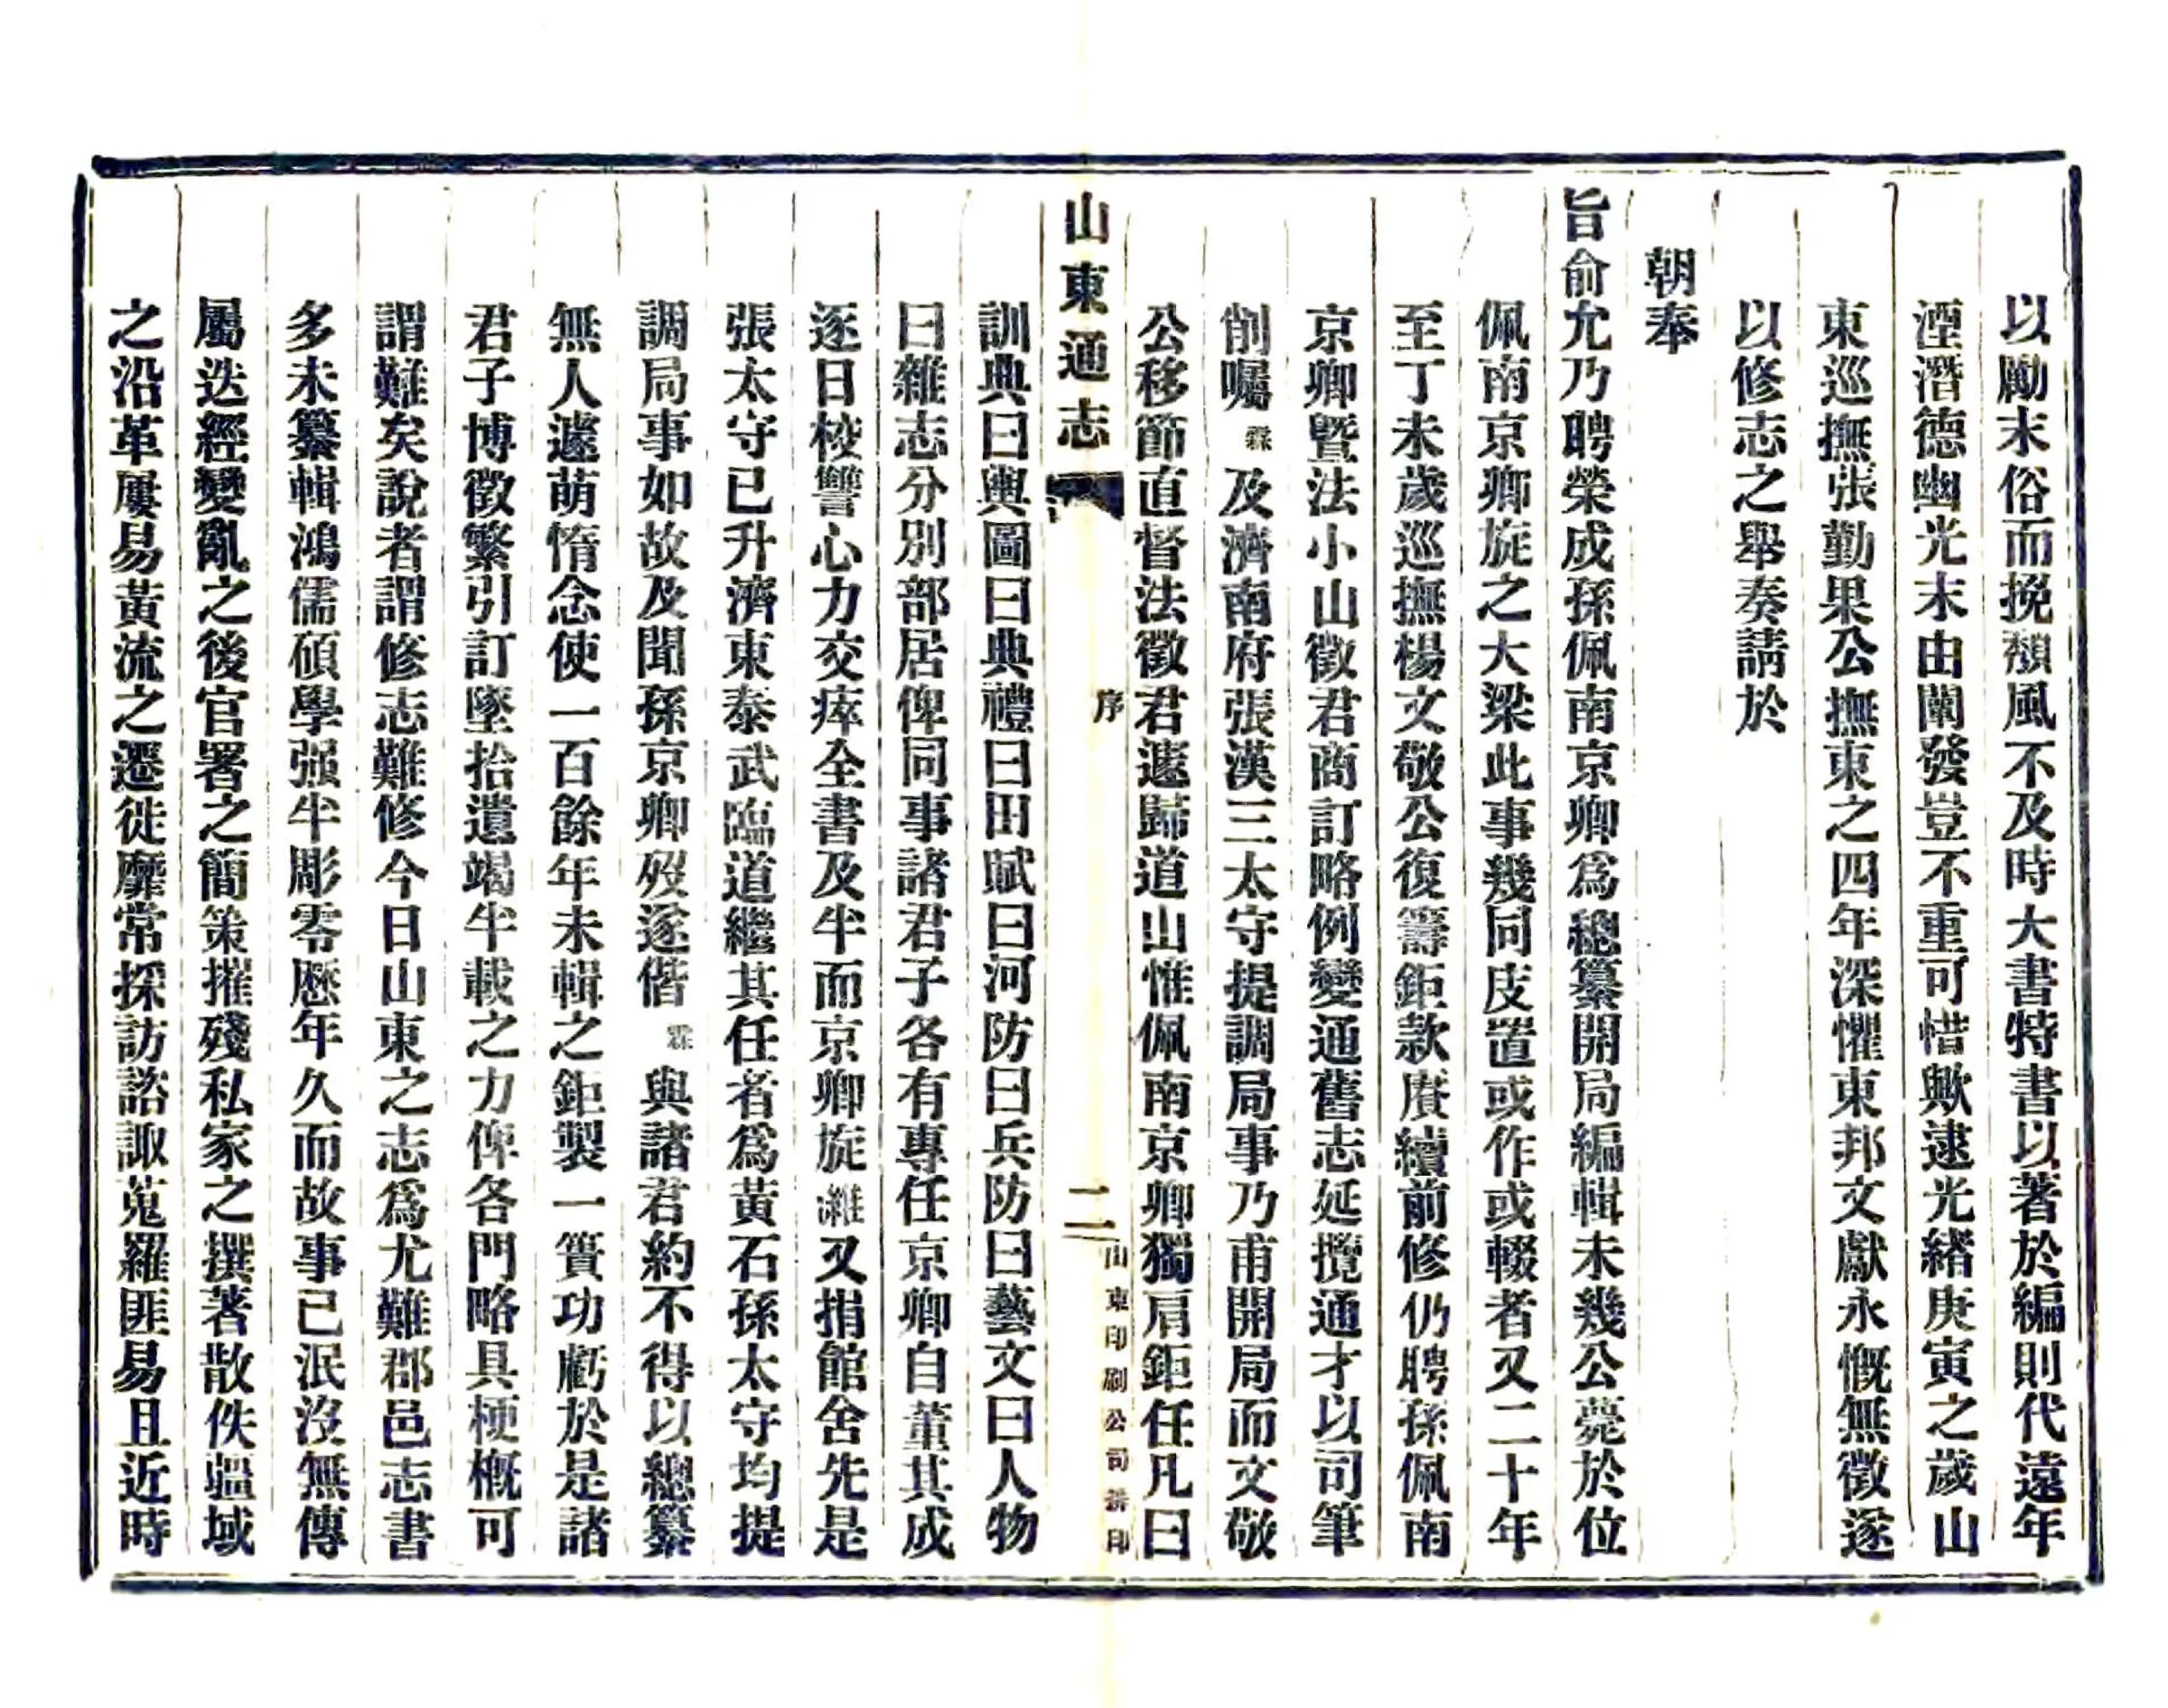 以勵末俗而挽頹風不及時大書特書以著於編則代遠年
湮潛德幽光末由闡發豈不重可惜歟逮光緒庚寅之歲山
東巡撫張勤果公撫東之四年深懼東邦文獻永慨無徵遂
以修志之舉奏請於
朝奉
旨俞允乃聘榮成孫佩南京卿爲總纂開局編輯未幾公薨於位
佩南京卿旋之大梁此事幾同庋置或作或輟者又二十年
至丁未歲巡撫楊文敬公復籌鉅款賡續前修仍聘孫佩南
京卿曁法小山徵君商訂略例變通舊志延攬通才以司筆
削囑霖及濟南府張漢三太守提調局事乃甫開局而文敬
公移節直督法徵君遽歸道山惟佩南京卿獨肩鉅任凡曰
山東通志
序
二
山東印刷公司排印
訓典曰輿圖曰典禮曰田賦曰河防曰兵防曰藝文曰人物
曰雜志分別部居俾同事諸君子各有專任京卿自董其成
逐日校讐心力交瘁全書及半而京卿旋濰又捐館舍先是
張太守已升濟東泰武臨道繼其任者爲黃石孫太守均提
調局事如故及聞孫京卿歿遂偕霖與諸君約不得以總纂
無人遽萌惰念使一百餘年未輯之鉅製一簣功虧於是諸
君子博徵繁引訂墜拾遺竭半載之力俾各門略具梗概可
謂難矣說者謂修志難修今日山東之志爲尤難郡邑志書
多未纂輯鴻儒碩學强半彫零歷年久而故事已泯沒無傳
屬迭經變亂之後官署之簡策摧殘私家之撰著散佚疆域
之沿革屢易黃流之遷徙靡常採訪諮諏蒐羅匪易且近時